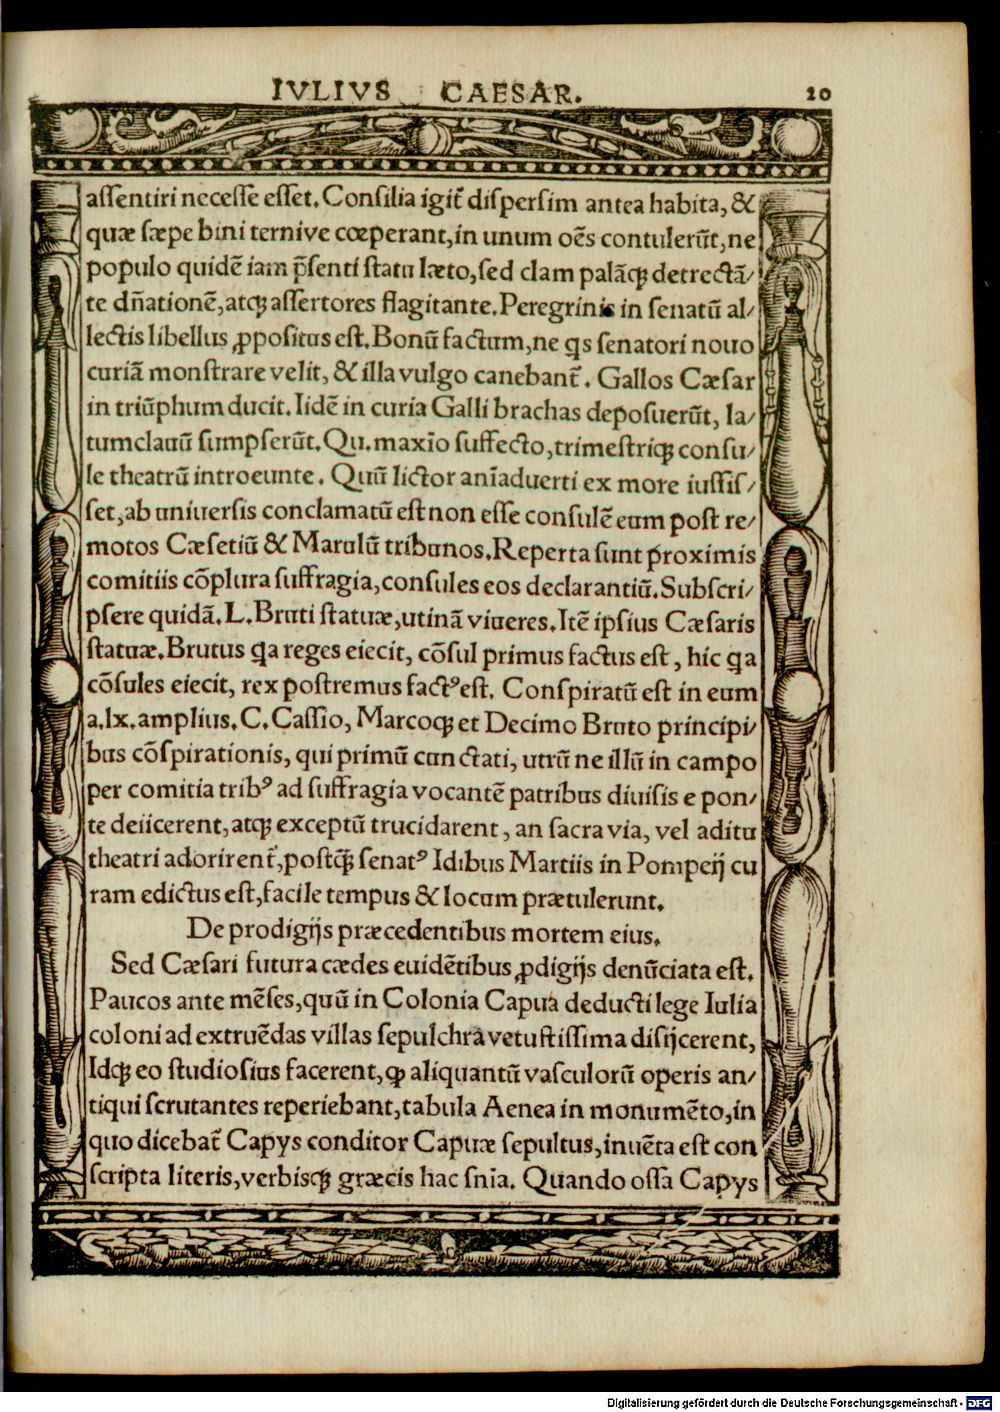 IVLIVS CAESAR. 20
assentiri necesse esset. Consilia igit̃ dispersim antea habita, &
quæ sæpe bini ternive cœperant, in unum oẽs contulerũt, ne
populo quidẽ iam p̃senti statu læto, sed clam palãqꝫ detrectã/
te dñationẽ, atqꝫ assertores flagitante. Peregrinis in senatũ al/
lectis libellus ꝓpositus est. Bonũ factum, ne q̃s senatori nouo
curiã monstrare velit, & illa vulgo canebant̃. Gallos Cæsar
in triũphum ducit. Iidẽ in curia Galli brachas deposuerũt, la/
tumclauũ sumpserũt. Qu. maxĩo suffecto, trimestriqꝫ consu/
le theatrũ introeunte. Quũ lictor anĩaduerti ex more iussis/
set, ab uniuersis conclamatũ est non esse consulẽ eum post re/
motos Cæsetiũ & Marulũ tribunos. Reperta sunt proximis
comitiis cõplura suffragia, consules eos declarantiũ. Subscri/
psere quidã. L. Bruti statuæ, utinã viueres. Itẽ ipsius Cæsaris
statuæ. Brutus q̃a reges eiecit, cõsul primus factus est, hic q̃a
cõsules eiecit, rex postremus factꝰ est. Conspiratũ est in eum
a. lx. amplius. C. Cassio, Marcoqꝫ et Decimo Bruto principi/
bus cõspirationis, qui primũ cunctati, utrũ ne illũ in campo
per comitia tribꝰ ad suffragia vocantẽ patribus diuisis e pon/
te deiicerent, atqꝫ exceptũ trucidarent, an sacra via, vel aditu
theatri adorirent̃, postq̃ꝫ senatꝰ Idibus Martiis in Pompeij cu
ram edictus est, facile tempus & locum prætulerunt.
De prodigijs præcedentibus mortem eius.
Sed Cæsari futura cædes euidẽtibus ꝓdigijs denũciata est.
Paucos ante mẽses, quũ in Colonia Capua deducti lege Iulia
coloni ad extruẽdas villas sepulchra vetustissima disijcerent,
Idqꝫ eo studiosius facerent, ꝙ aliquantũ vasculorũ operis an/
tiqui scrutantes reperiebant, tabula Aenea in monumẽto, in
quo dicebat̃ Capys conditor Capuæ sepultus, inuẽta est con
scripta literis, verbisqꝫ græcis hac snĩa. Quando ossa Capys
Digitalisierung gefördert durch die Deutsche Forschungsgemeinschaft - DFG